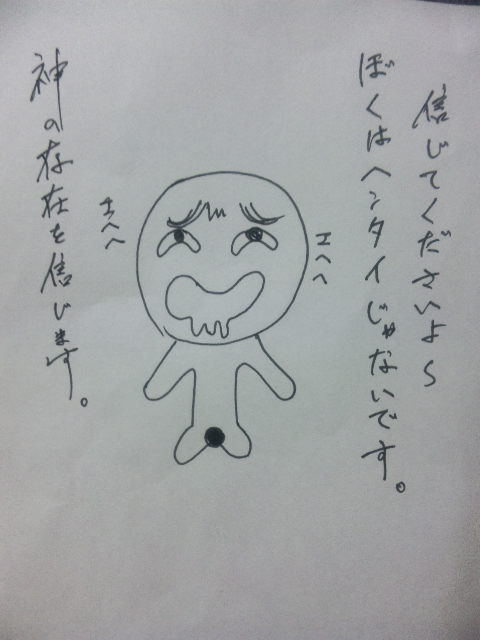 信じてくださいよ〜
ぼくはヘンタイじゃないです。
エヘヘ
エヘヘ
神の存在を信じます。